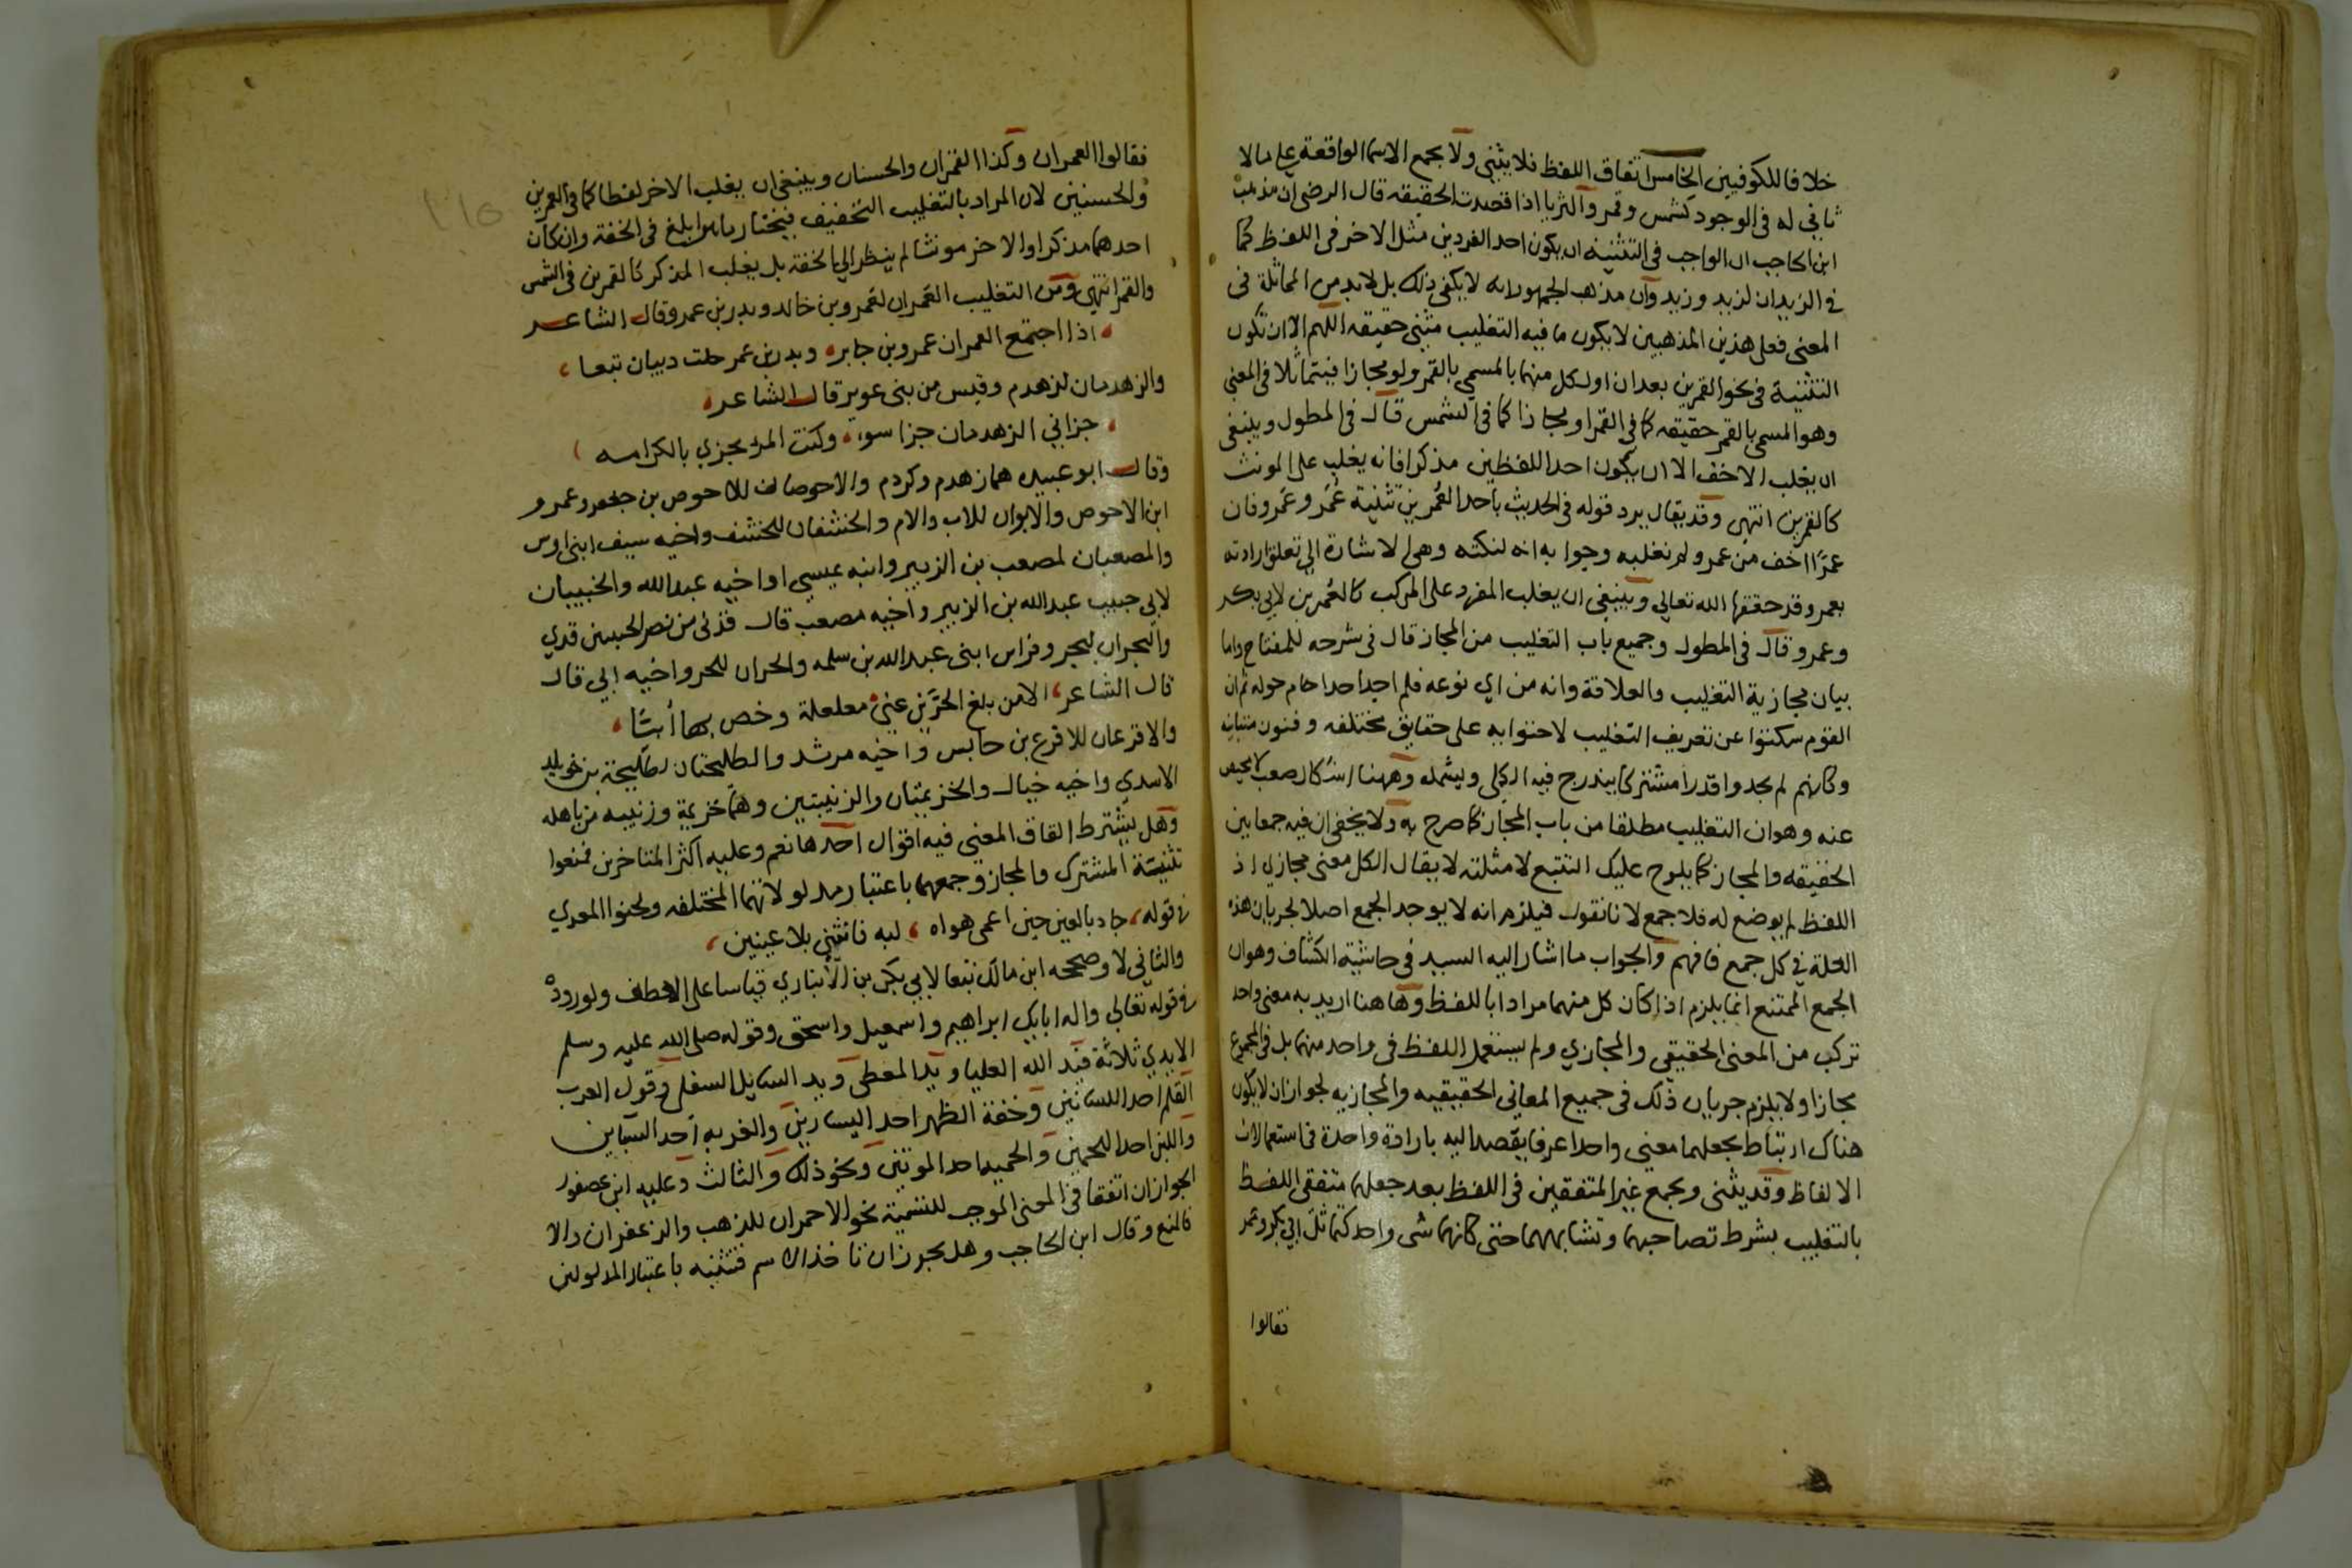 خلافا للكوفيين الخامس اتفاق اللفظ فلا يثنى ولا يجمع الاسما الواقعة على ما لا
ثاني له فى الوجود كشمس وقمر والثريا اذا قصدت الحقيقه قال الرضى ان مذهب
ابن الحاجب ان الواجب فى التثنيه ان يكون احد الفردين مثل الاخر فى اللفظ كما
فى الزيدان لزيد وزيد وان مذهب الجمهور انه لا يكفى ذلك بل لابد من المماثلة فى
المعنى فعلى هذين المذهبين لا يكون ما فيه التغليب مثنى حقيقه اللهم الا ان تكون
التثنية فى نحو القمرين بعد ان اول كل منهما بالمسمى بالقمر ولو مجازا فيتماثلا فى المعنى
وهو المسمى بالقمر حقيقه كما فى القمر او مجازا كما فى الشمس قال فى المطول وينبغى
ان يغلب الاخف الا ان يكون احد اللفظين مذكرا فانه يغلب على المونث
كالقمرين انتهى وقد يقال يرد قوله فى الحديث باحد العمرين تثنية عُمَر وعمرو فان
عمرًا اخف من عمر ولم نغلبه وجوابه انه لنكته وهى الاشارة الى تعلق ارادته
بعمر وقد حققها الله تعالى وينبغى ان يغلب المفرد على المركب كالعُمرين لابى بكر
وعمر وقال فى المطول وجميع باب التغليب من المجاز قال فى شرحه للمفتاح واما
بيان مجازية التغليب والعلاقة وانه من اي نوعه فلم اجد احدا حام حوله ثم ان
القوم سكتوا عن تعريف التغليب لاحتوايه على حقايق مختلفه وفنون متباينه
وكانهم لم يجدوا قدرا مشتركا يندرج فيه الكل ويشمله وههنا اشكال صعب لا محيص
عنه وهو ان التغليب مطلقا من باب المجاز كما صرح به ولا يخفى ان فيه جمعا بين
الحقيقه والمجاز كما يلوح عليك التتبع لامثلته لا يقال الكل معنى مجازي اذ
اللفظ لم يوضع له فلا جمع لانا نقول فيلزم انه لا يوجد الجمع اصلا لجريان هذه
العلة فى كل جمع فافهم والجواب ما اشار اليه السيد فى حاشية الكشاف وهو ان
الجمع الممتنع انما يلزم اذا كان كل منهما مرادا باللفظ وها هنا اريد به معنى واحد
تركب من المعنى الحقيقي والمجازي ولم يستعمل اللفظ فى واحد منهما بل فى المجموع
مجازا ولا يلزم جريان ذلك فى جميع المعانى الحقيقيه والمجازيه لجواز ان لا يكون
هناك ارتباط يجعلهما معنى واحدا عرفا يقصد اليه بارادة واحدة فى استعمالات
الالفاظ وقد يثنى ويجمع غير المتفقين فى اللفظ بعد جعلهما متفقى اللفظ
بالتغليب بشرط تصاحبهما وتشابههما حتى كانهما شى واحد كتماثل ابى بكر وعمر
فقالوا
فقالوا العمران وكذا القمران والحسنان وينبغى ان يغلب الاخر لفظا كما فى العمرين
والحسنين لان المراد بالتغليب التخفيف فيختار ما هو ابلغ فى الخفة وان كان
احدهما مذكرا والاخر مونثا لم ينظر الى الخفة بل يغلب المذكر كالقمرين فى الشمس
والقمر انتهى ومن التغليب العَمران لعَمرو بن خالد وبدر بن عمرو قال الشاعر
اذا اجتمع العمران عمرو بن جابر وبدر بن عمر خلت دبيان تبعا
والزهدمان لزهدم وقيس من بنى عوير قال الشاعر
جزاني الزهدمان جزا سوء وكنت المرء يجزي بالكرامه
وقال ابو عبيده هما زهدم وكردم والاحوصان للاحوص بن جعفر وعمرو
ابن الاحوص والابوان للاب والام والخنشفان للخنشف واخيه سيف ابنى اوس
والمصعبان لمصعب بن الزبير وابنه عيسى او اخيه عبد الله والخبيبان
لابى خبيب عبد الله بن الزبير واخيه مصعب قال قدنى من نصر الخبيبين قدي
والبجران لبجر وفراس ابنى عبد الله بن سلمه والحران للحر واخيه ابي قال
قال الشاعر الا من بلغ الحُرَّين عنى مغلغلة وخص بها أبيًّا
والاقرعان للاقرع بن حابس واخيه مرشد والطليحتان لطليحة بن خويلد
الاسدي واخيه خيال والخزيمتان والزنيبتين وهما خزيمة وزنيبه من باهله
وهل يشترط اتفاق المعنى فيه اقوال احدها نعم وعليه اكثر المتاخرين فمنعوا
تثنيَة المشترك والمجاز وجمعهما باعتبار مدلولاتهما المختلفه ولحنوا المعري
فى قوله جاد بالعين حين اعمى هواه لبه فانثنى بلا عينين
والثانى لا وصححه ابن مالك تبعا لابى بكر بن الأنباري قياسا على العطف ولوروده
فى قوله تعالى واله ابايك ابراهيم واسمعيل واسحق وقوله صلى الله عليه وسلم
الايدي ثلاثة فيد الله العليا ويد المعطى ويد السايل السفلى وقول العرب
القلم احد اللسانين وخفة الظهر احد اليسارين والغربه احد السباين
واللبن احد اللحمين والحميه احد الموتتين ونحو ذلك والثالث وعليه ابن عصفور
الجواز ان اتفقا فى المعنى الموجب للتسمية نحو الاحمران للذهب والزعفران والا
فالمنع وقال ابن الحاجب وهل يجوز ان تاخذ الاسم فتثنيه باعتبار المدلولين